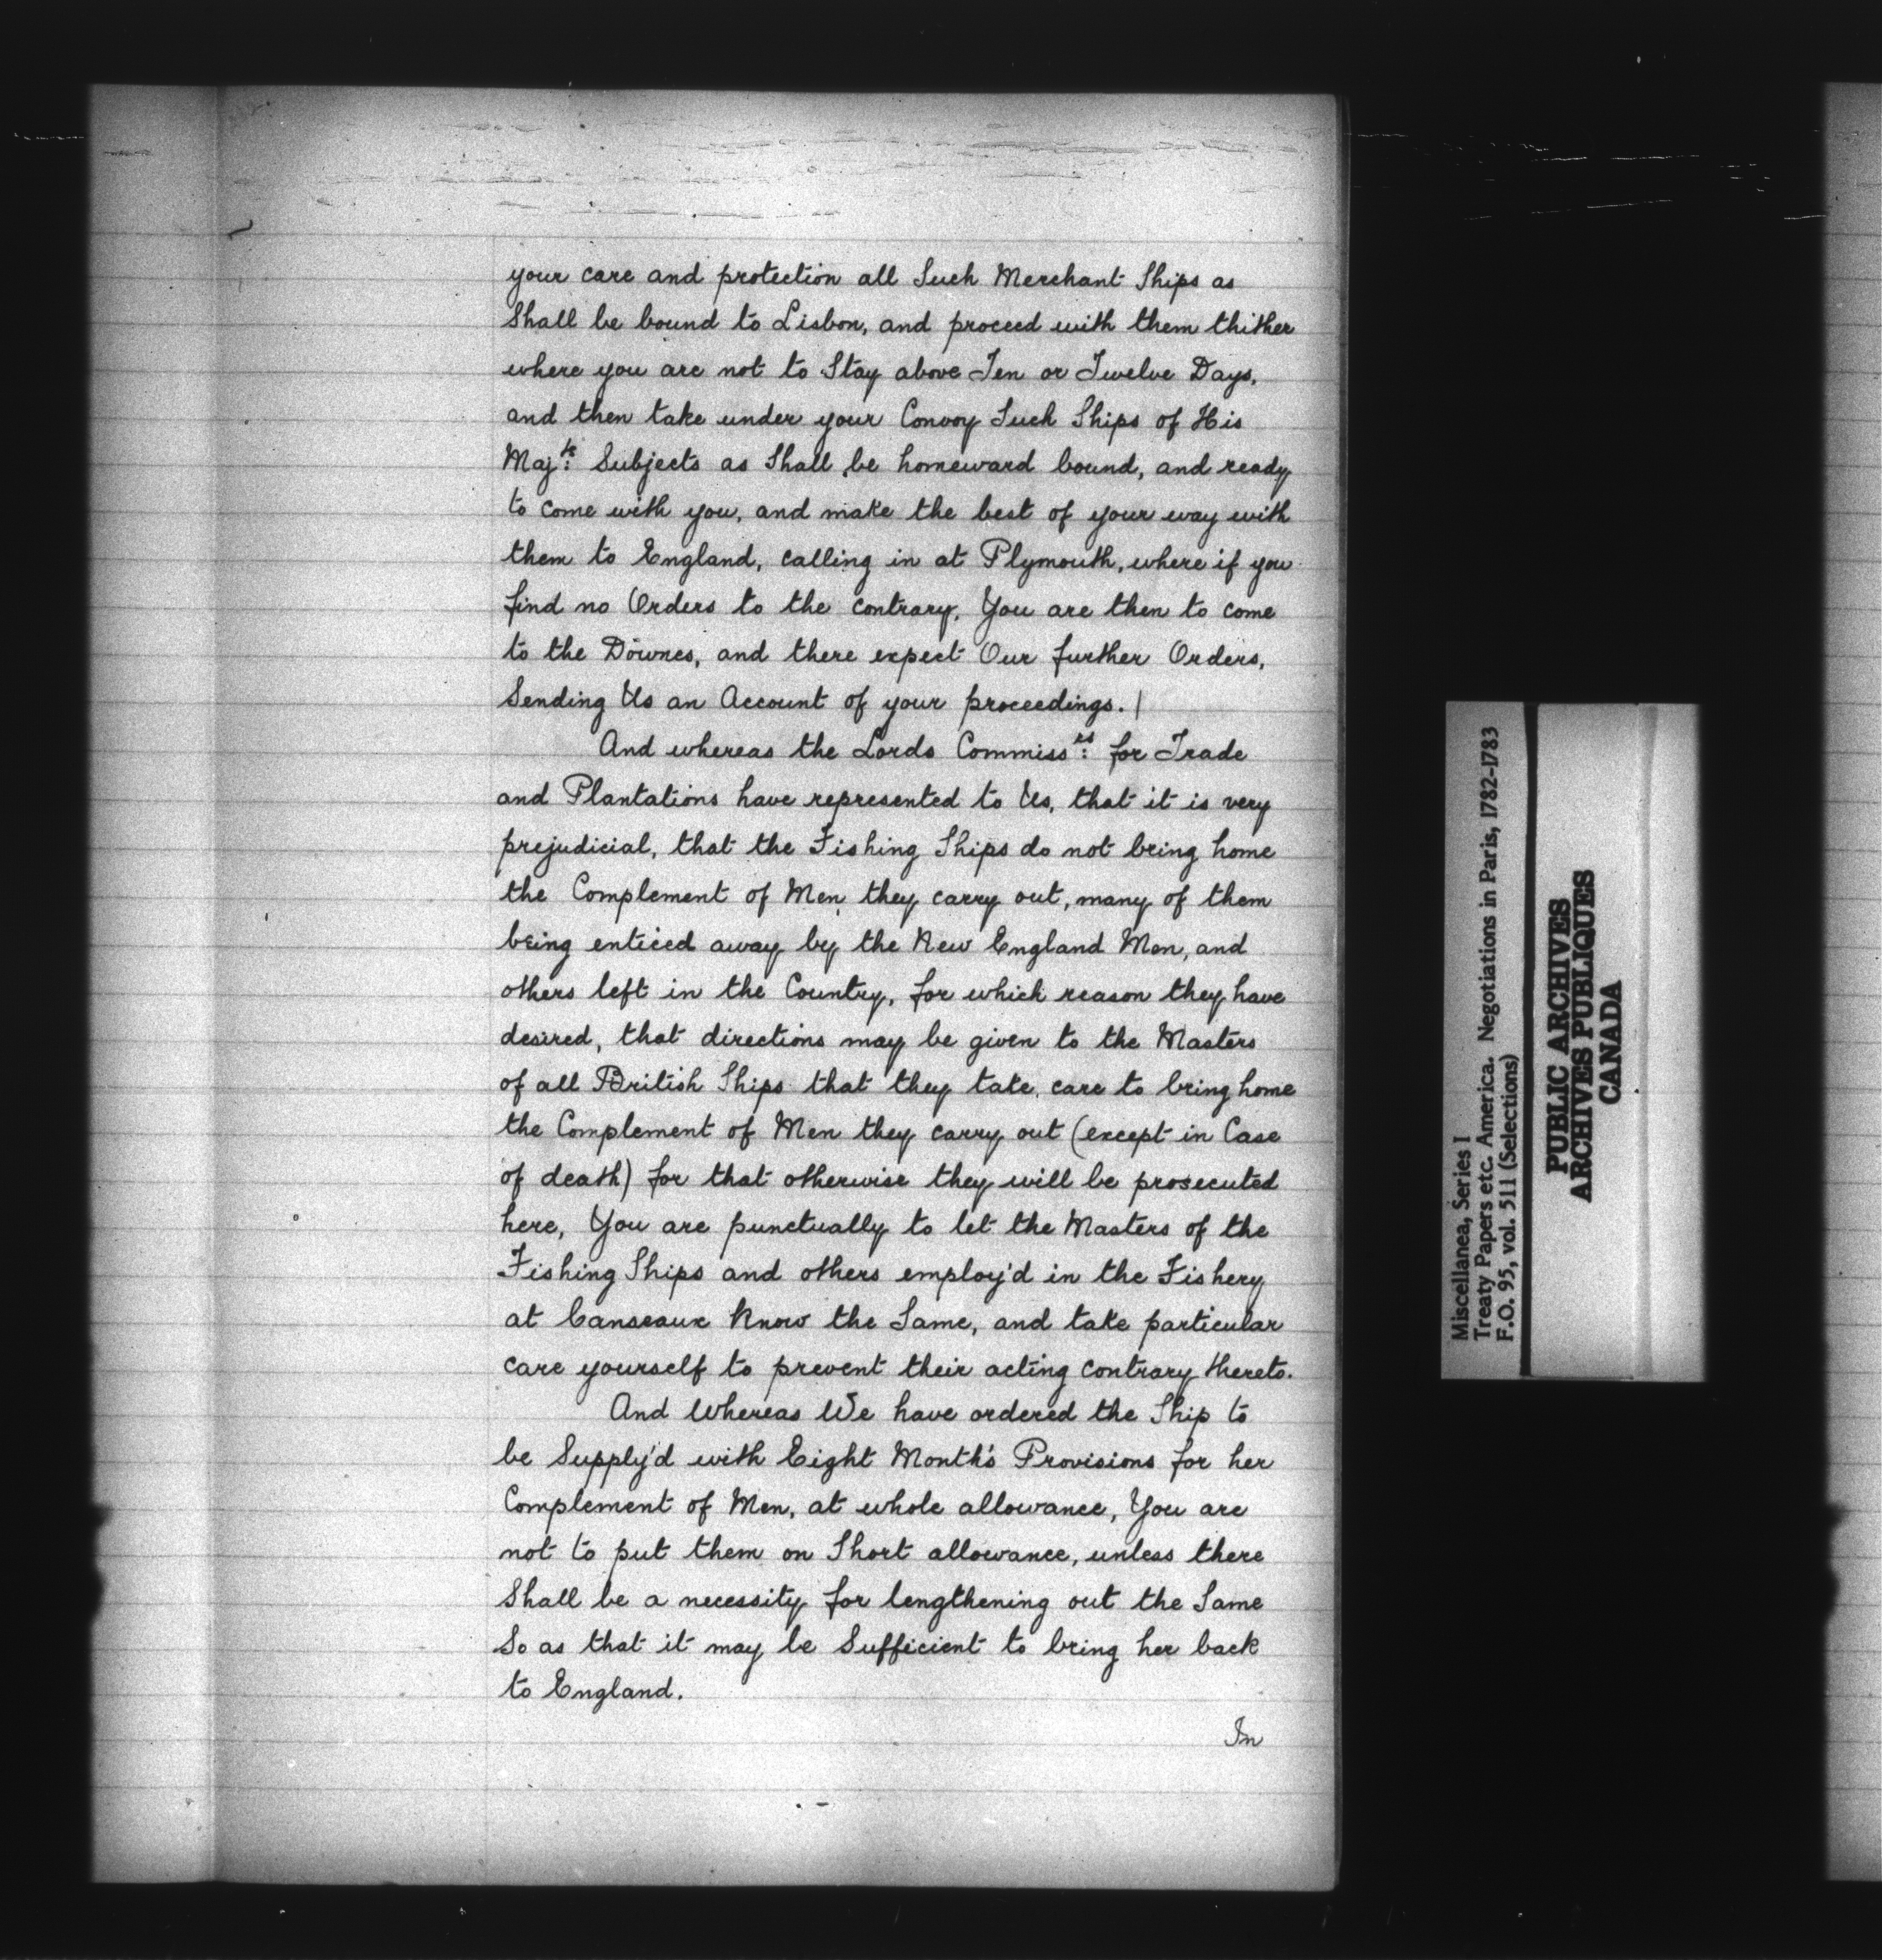 your care and protection all Such Merchant Ships as
Shall be bound to Lisbon, and proceed with them thither
where you are not to Stay above Ten or Twelve Days,
and then take under your Convoy Such Ships of His
Maj:ts Subjects as Shall be homeward bound, and ready
to come with you, and make the best of your way with
them to England, calling in at Plymouth, where if you
find no Orders to the contrary, You are then to come
to the Downes, and there expect Our further Orders,
Sending Us an Account of your proceedings. |
And whereas the Lords Commiss:rs for Trade
and Plantations have represented to Us, that it is very
prejudicial, that the Fishing Ships do not bring home
the Complement of Men they carry out, many of them
being enticed away by the New England Men, and
others left in the Country, for which reason they have
desired, that directions may be given to the Masters
of all British Ships that they take care to bring home
the Complement of Men they carry out (except in Case
of death) for that otherwise they will be prosecuted
here, You are punctually to let the Masters of the
Fishing Ships and others employ'd in the Fishery
at Canseaux know the Same, and take particular
care yourself to prevent their acting contrary thereto.
And Whereas We have ordered the Ship to
be Supply'd with Eight Month's Provisions for her
Complement of Men, at whole allowance, You are
not to put them on Short allowance, unless there
Shall be a necessity for lengthening out the Same
So as that it may be Sufficient to bring her back
to England.
In
Miscellanea, Series I
Treaty Papers etc. America. Negotiations in Paris, 1782-1783
F.O. 95, vol. 511 (Selections)
PUBLIC ARCHIVES
ARCHIVES PUBLIQUES
CANADA